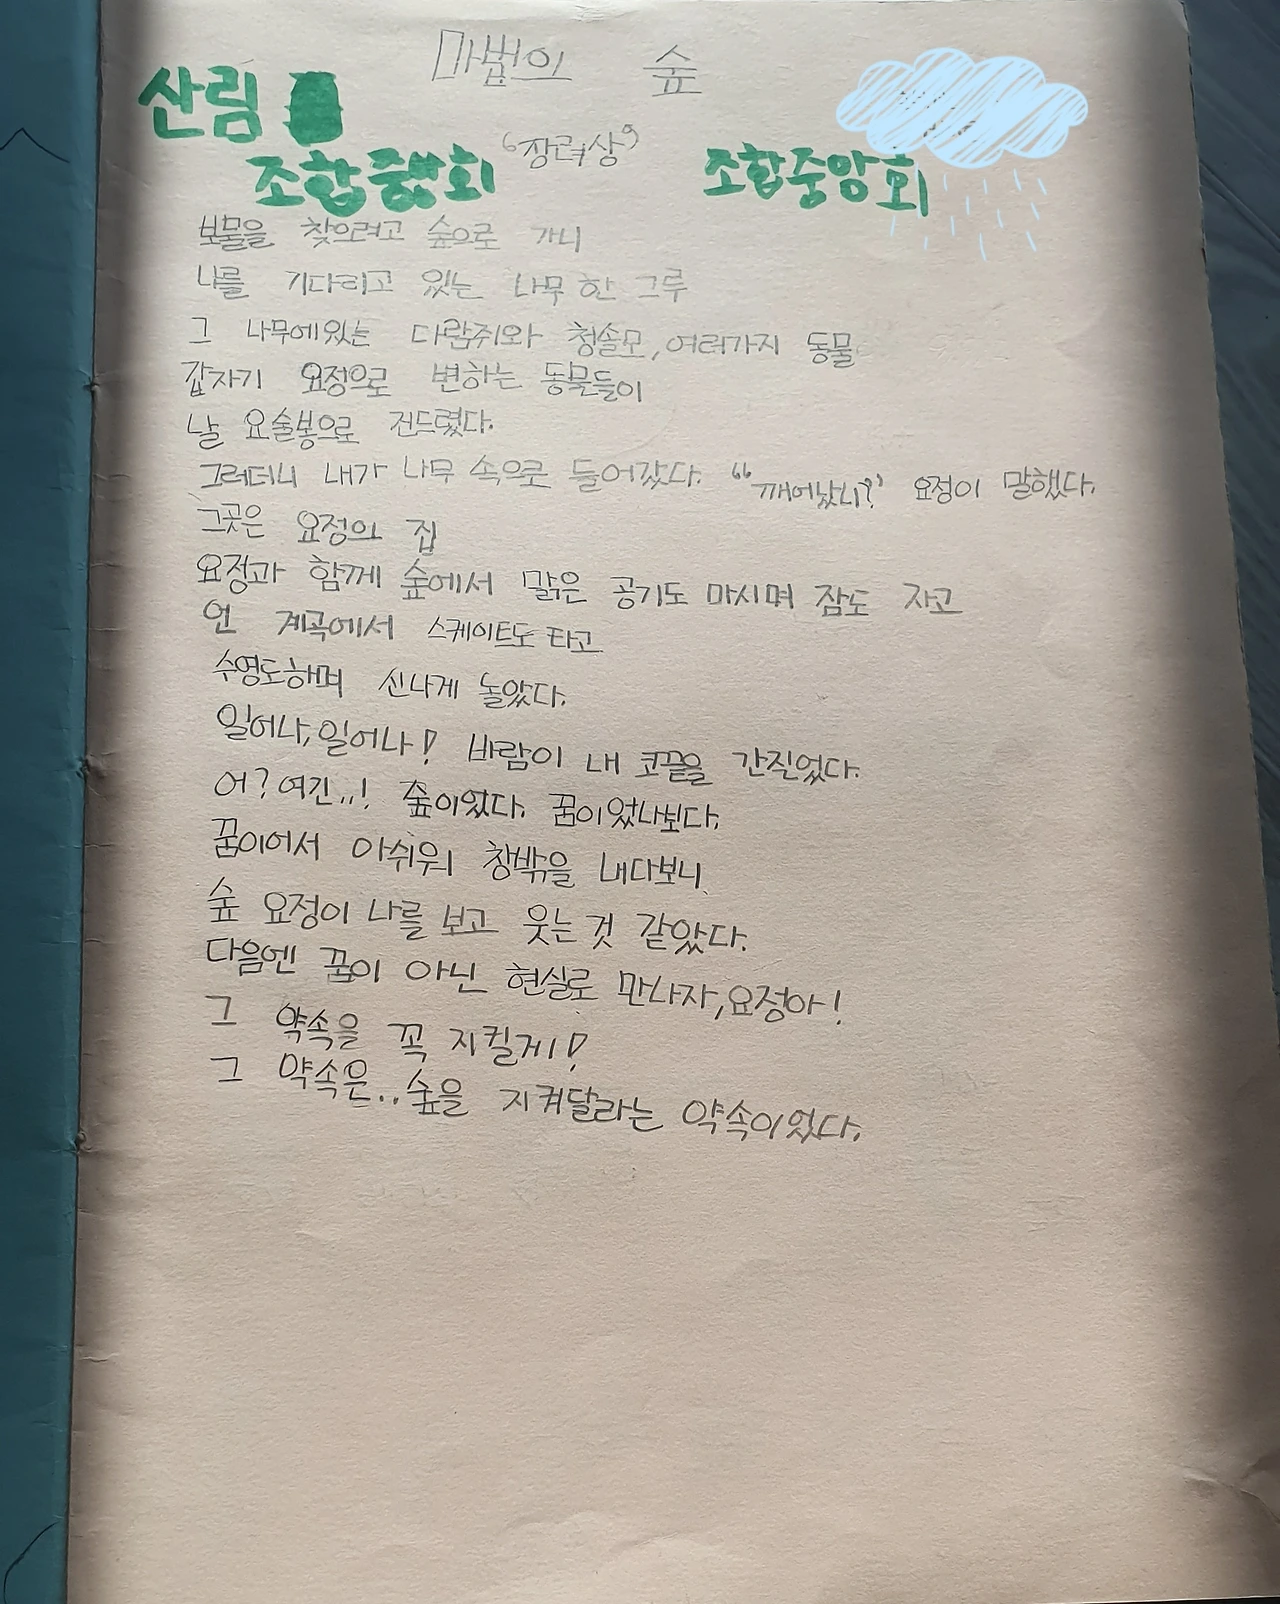 마법의 숲
산림
조합중앙회 "장려상" 조합중앙회
보물을 찾으려고 숲으로 가니
나를 기다리고 있는 나무 한 그루
그 나무에있는 다람쥐와 청솔모, 여러가지 동물
갑자기 요정으로 변하는 동물들이
날 요술봉으로 건드렸다.
그러더니 내가 나무 속으로 들어갔다. "깨어났니?" 요정이 말했다.
그곳은 요정의 집
요정과 함께 숲에서 맑은 공기도 마시며 잠도 자고
언 계곡에서 스케이트도 타고
수영도하며 신나게 놀았다.
일어나, 일어나! 바람이 내 코끝을 간질었다.
어? 여긴..! 숲이었다. 꿈이었나보다.
꿈이어서 아쉬워 창밖을 내다보니
숲 요정이 나를 보고 웃는것 같았다.
다음엔 꿈이 아닌 현실로 만나자, 요정아!
그 약속을 꼭 지킬게!
그 약속은.. 숲을 지켜달라는 약속이었다.